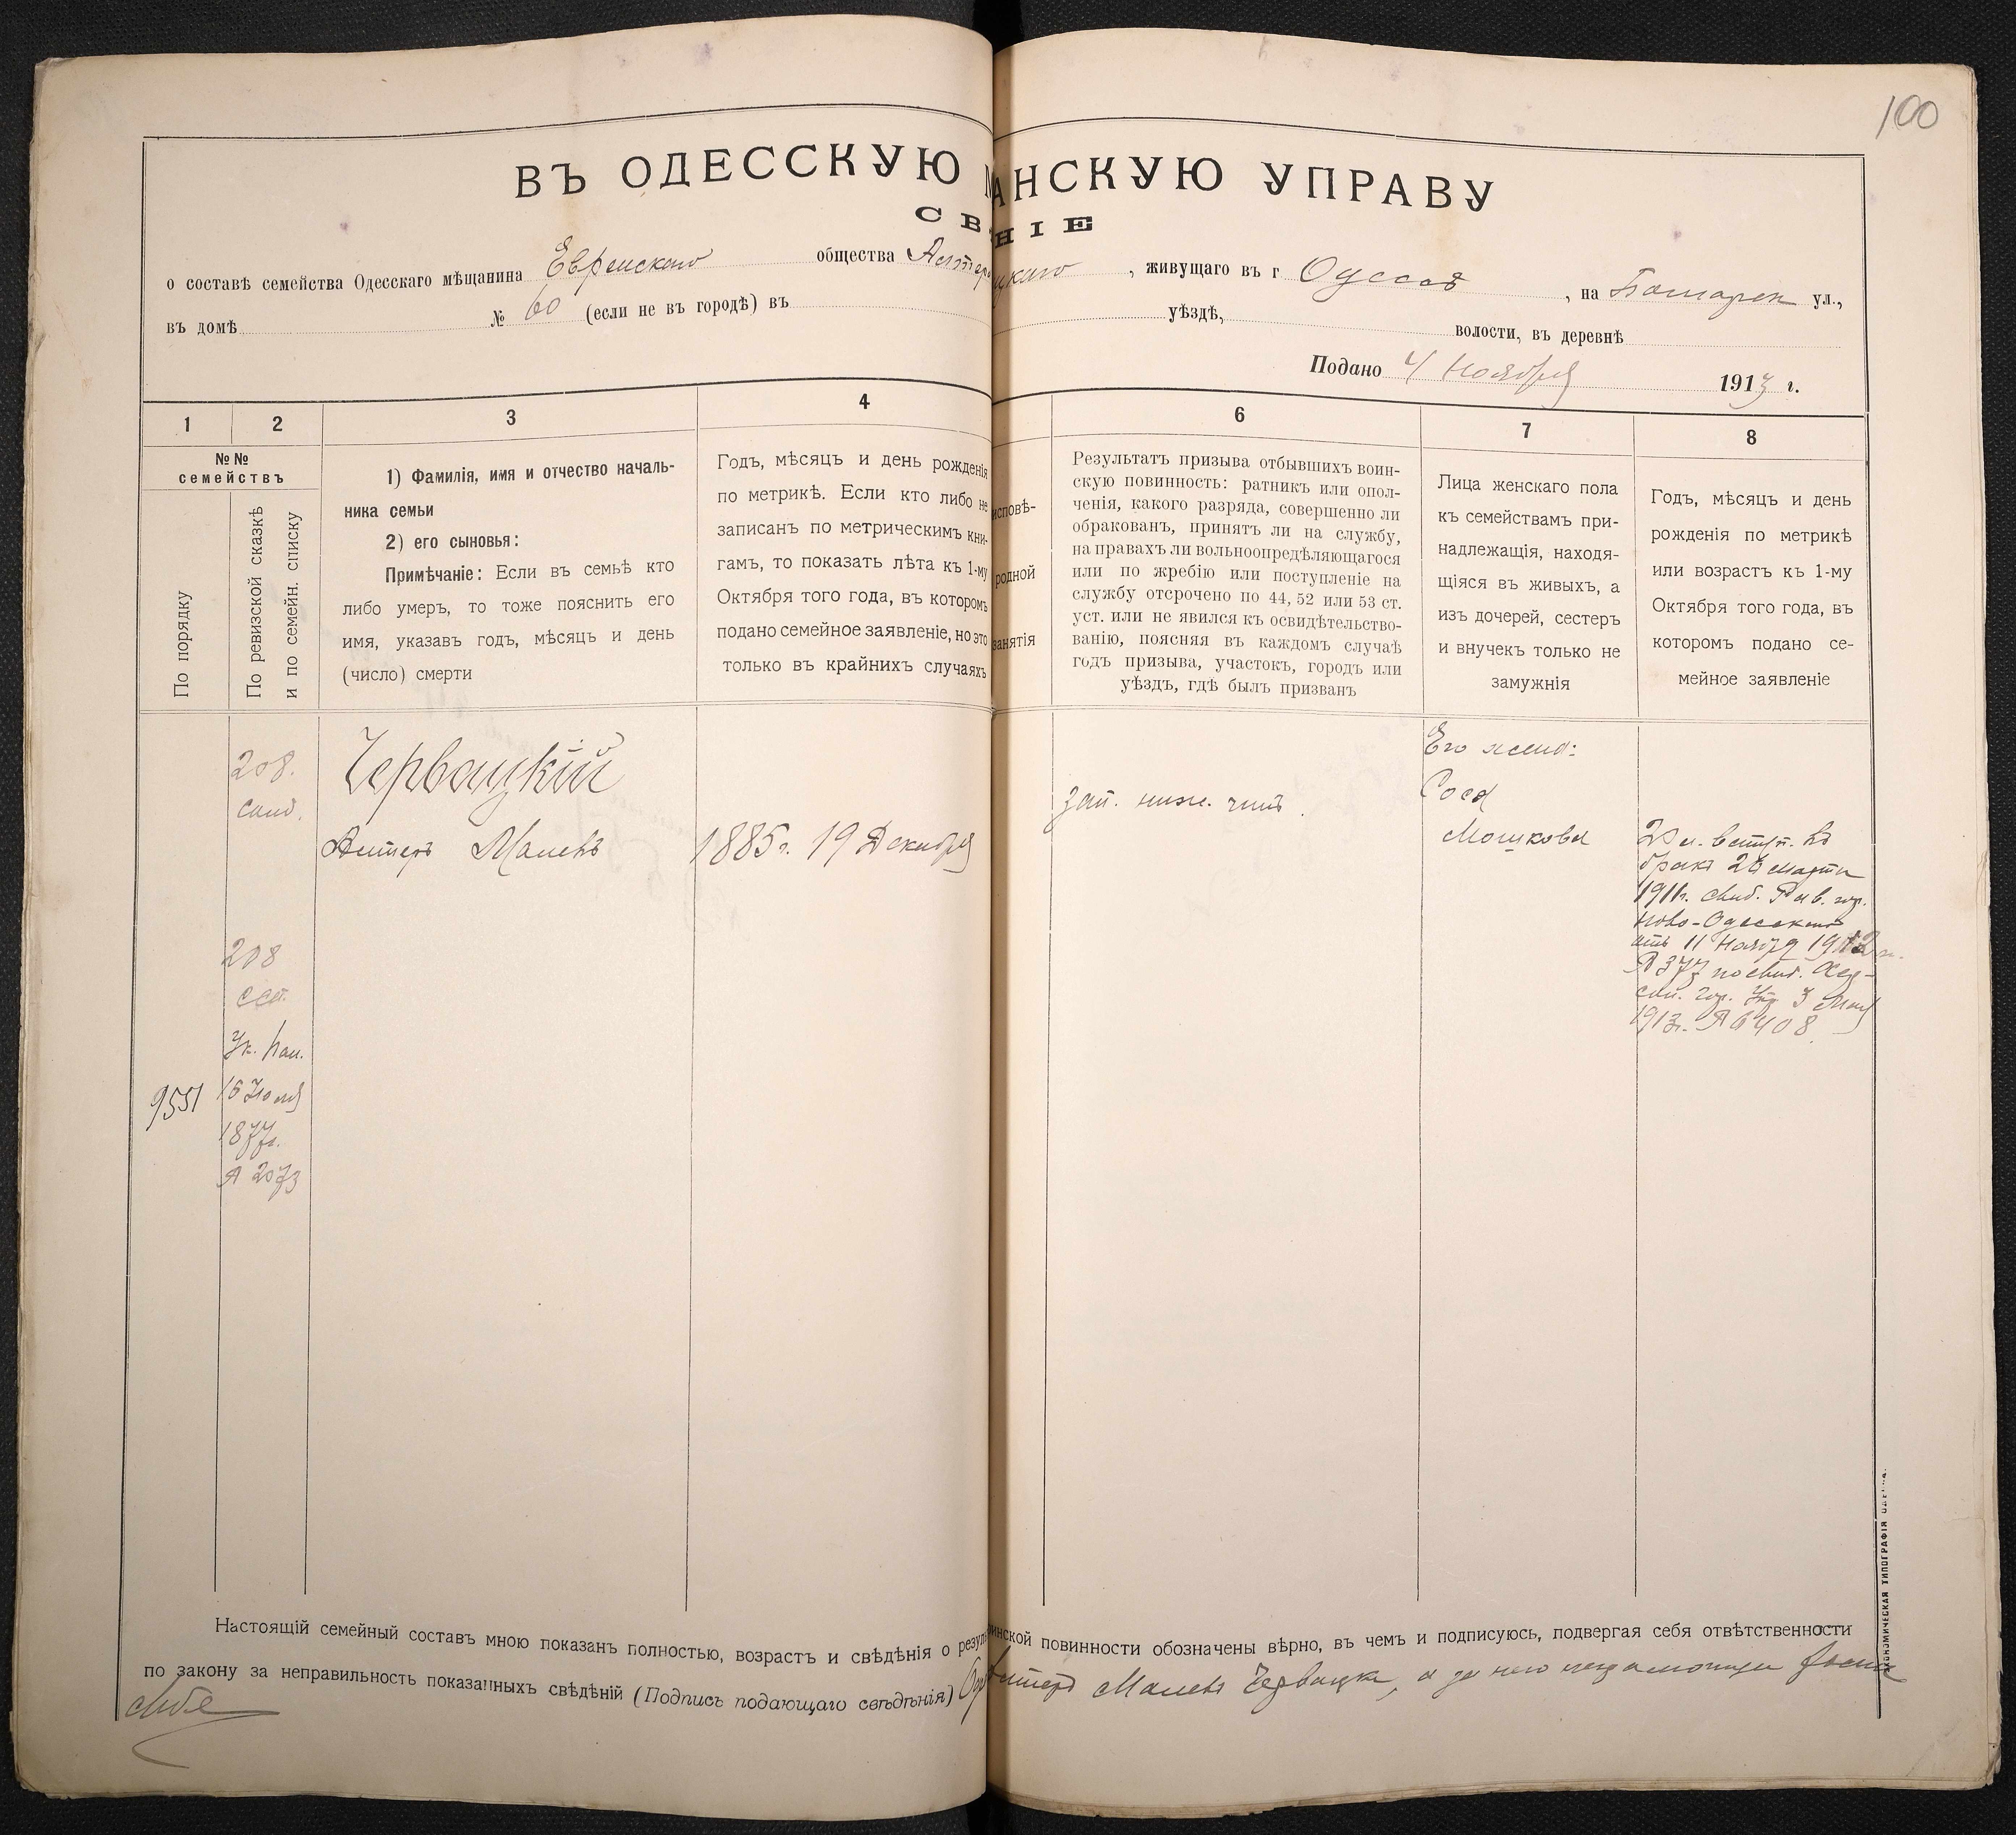 100
ВЪ ОДЕССКУЮ МАНСКУЮ УПРАВУ
СВНІЕ
о составѣ семейства Одесскаго мѣщанина Еврейскаго общества , живущаго въ г Одессѣ , на ул.,
въ домѣ № 60 (если не въ городѣ) въ уѣздѣ, волости, въ деревнѣ
Подано 4 Ноября 1913 г.
1 2 3 4 6 7 8
№№ семействъ
По порядку
По ревизской сказкѣ
и по семейн. списку
1) Фамилія, имя и отчество началь-
ника семьи
2) его сыновья:
Примѣчаніе: Если въ семьѣ кто
либо умеръ, то тоже пояснить его
имя, указавъ годъ, мѣсяцъ и день
(число) смерти
Годъ, мѣсяцъ и день рожденія
по метрикѣ. Если кто либо не
записанъ по метрическимъ кни-
гамъ, то показать лѣта къ 1-му
Октября того года, въ которомъ
подано семейное заявленіе, но это
только въ крайнихъ случаяхъ
исповѣ-
родной
занятія
Результатъ призыва отбывшихъ воин-
скую повинность: ратникъ или опол-
ченія, какого разряда, совершенно ли
обракованъ, принятъ ли на службу,
на правахъ ли вольноопредѣляющагося
или по жребію или поступленіе на
службу отсрочено по 44, 52 или 53 ст.
уст. или не явился къ освидѣтельство-
ванію, поясняя въ каждомъ случаѣ
годъ призыва, участокъ, городъ или
уѣздъ, гдѣ былъ призванъ
Лица женскаго пола
къ семействамъ при-
надлежащія, находя-
щіяся въ живыхъ, а
изъ дочерей, сестеръ
и внучекъ только не
замужнія
Годъ, мѣсяцъ и день
рожденія по метрикѣ
или возрастъ къ 1-му
Октября того года, въ
которомъ подано се-
мейное заявленіе
208.
208
Ук. Пал.
16 Іюля
1877г.
№ 2073
9551
Червацкій
1885 г. 19 Декабря
зап. нижн. чинъ.
Его жена:
Сося
Мошкова
вступ. въ
бракъ 26 Марта
1911г. свид. Рав. гор.
Ново-Одесскаго
отъ 11 Ноября 1912 г.
№ 377 по свид. Хер-
сон. гор. Упр. 3 Мая
1913г. № 6408.
Настоящій семейный составъ мною показанъ полностью, возрастъ и свѣдѣнія о резулинской повинности обозначены вѣрно, въ чемъ и подписуюсь, подвергая себя отвѣтственности
по закону за неправильность показанныхъ свѣдѣній (Подпись подающаго свѣдѣнія) Червацкій, а за него неграмотнаго
ЭКОНОМИЧЕСКАЯ ТИПОГРАФІЯ ОДЕССА.